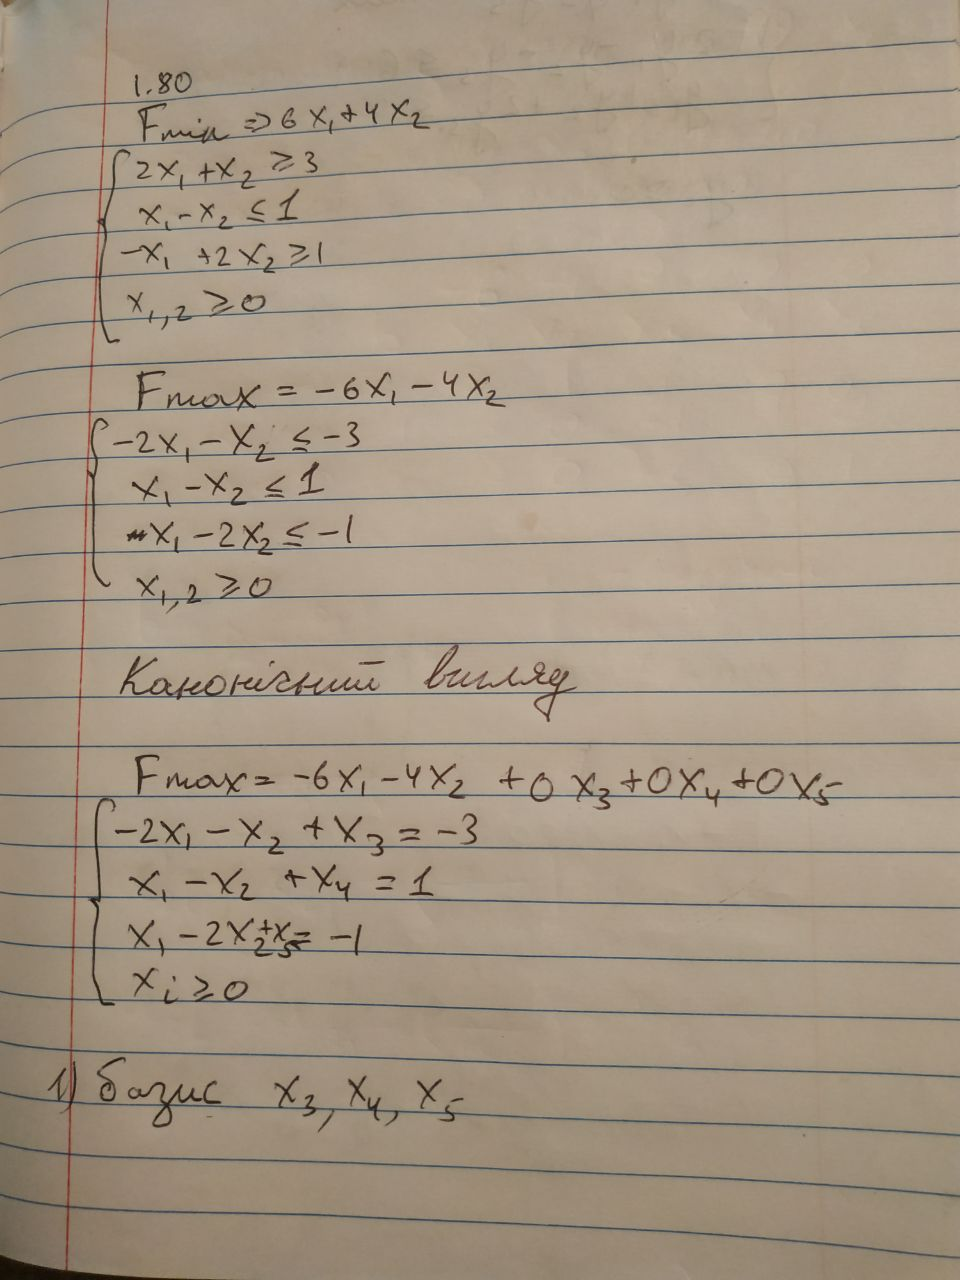 1.80
Fmin => 6x₁+4x₂
2x₁+x₂ ≥ 3
x₁-x₂ ≤ 1
-x₁ +2x₂ ≥ 1
x₁,₂ ≥ 0
Fmax = -6x₁ -4x₂
-2x₁ -x₂ ≤ -3
x₁ -x₂ ≤ 1
x₁ -2x₂ ≤ -1
x₁,₂ ≥ 0
Канонічний вигляд
Fmax = -6x₁ -4x₂ +0x₃ +0x₄ +0x₅
-2x₁ -x₂ +x₃ = -3
x₁ -x₂ +x₄ = 1
x₁ -2x₂ +x₅ = -1
xᵢ ≥ 0
1) базис x₃, x₄, x₅